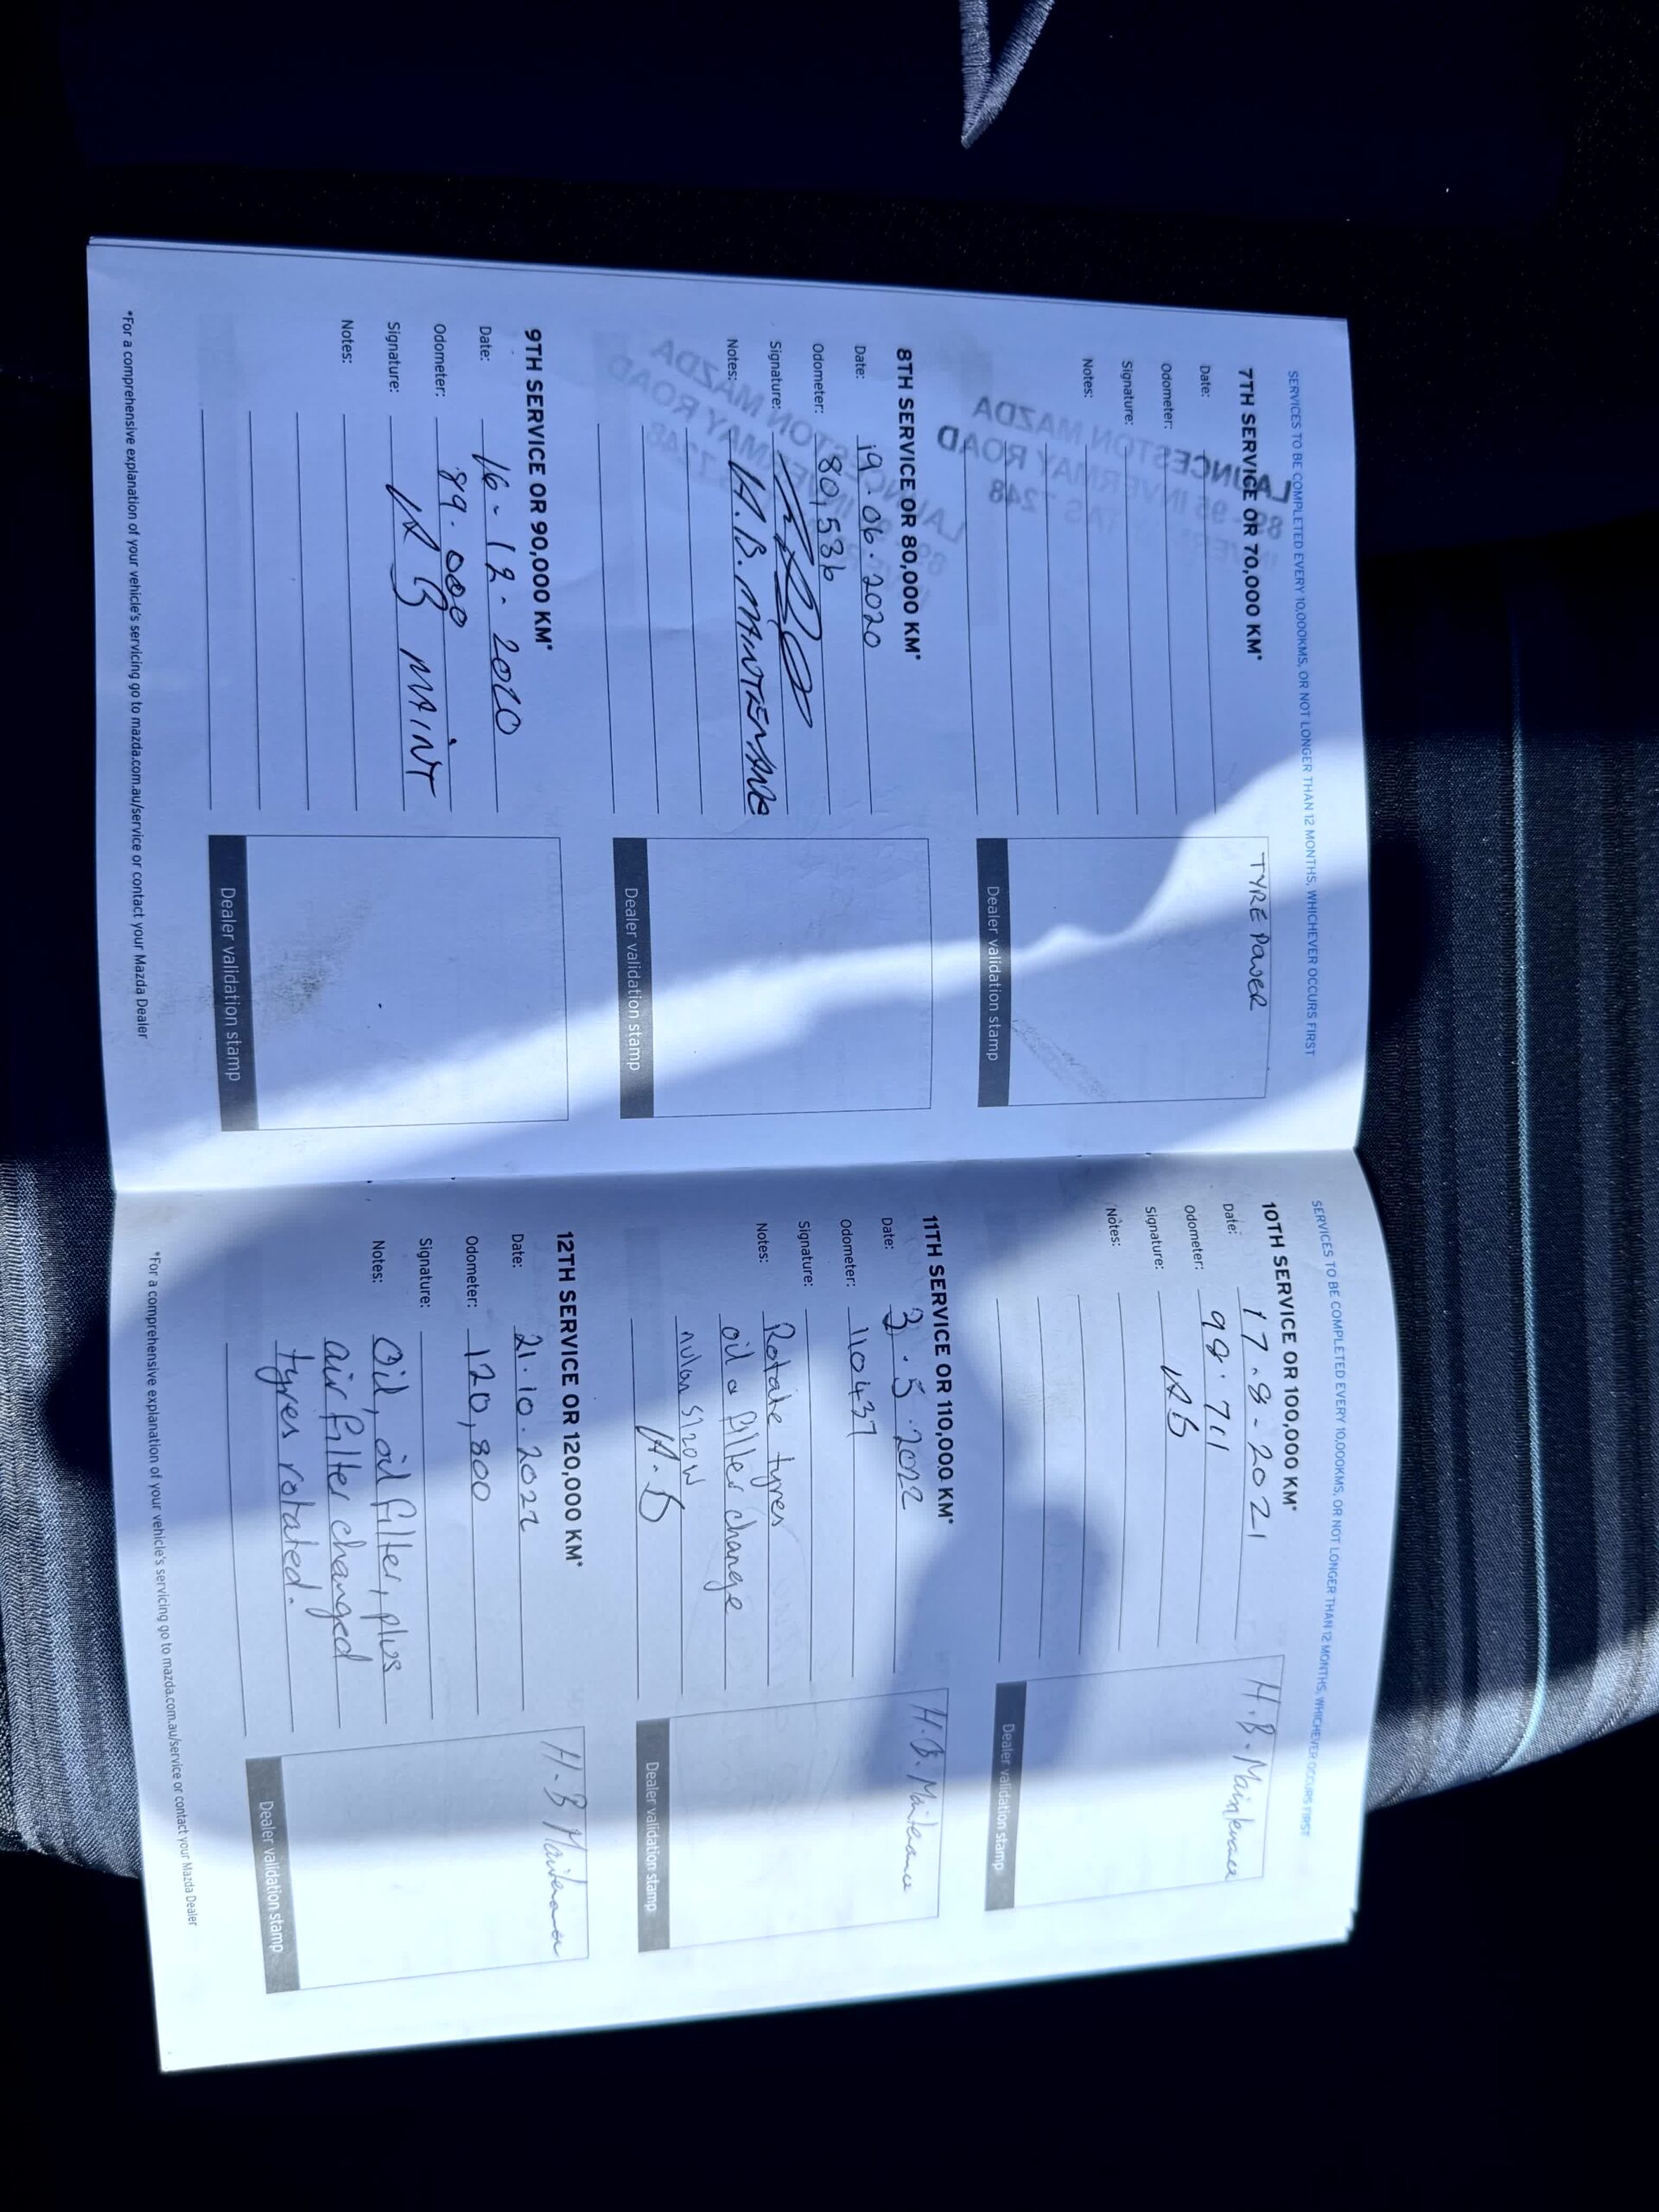 SERVICES TO BE COMPLETED EVERY 10,000KMS, OR NOT LONGER THAN 12 MONTHS, WHICHEVER OCCURS FIRST
7TH SERVICE OR 70,000 KM*
TYRE POWER
Date:
Odometer:
Signature:
Notes:
Dealer validation stamp
LAUNCESTON MAZDA
89-95 INVERMAY ROAD
TAS 7248
8TH SERVICE OR 80,000 KM*
Date: 19.06.2020
Odometer: 80,536
Signature:
Notes: H.B. MAINTENANCE
Dealer validation stamp
LAUNCESTON MAZDA
INVERMAY ROAD
7248
9TH SERVICE OR 90,000 KM*
Date: 16-12-2020
Odometer: 89.000
Signature: HB MAINT
Notes:
Dealer validation stamp
*For a comprehensive explanation of your vehicle's servicing go to mazda.com.au/service or contact your Mazda Dealer
SERVICES TO BE COMPLETED EVERY 10,000KMS, OR NOT LONGER THAN 12 MONTHS, WHICHEVER OCCURS FIRST
10TH SERVICE OR 100,000 KM*
H.B. Maintenance
Date: 17-8-2021
Odometer: 98.711
Signature: HB
Notes:
Dealer validation stamp
11TH SERVICE OR 110,000 KM*
H.B. Maintenance
Date: 3.5.2022
Odometer: 110437
Signature:
Notes: Rotate tyres
oil & filter change
nulon 5/20W
H.B
Dealer validation stamp
12TH SERVICE OR 120,000 KM*
H-B Maintenance
Date: 21.10.2022
Odometer: 120,800
Signature:
Notes: Oil, oil filter, plus
air filter changed
tyres rotated.
Dealer validation stamp
*For a comprehensive explanation of your vehicle's servicing go to mazda.com.au/service or contact your Mazda Dealer